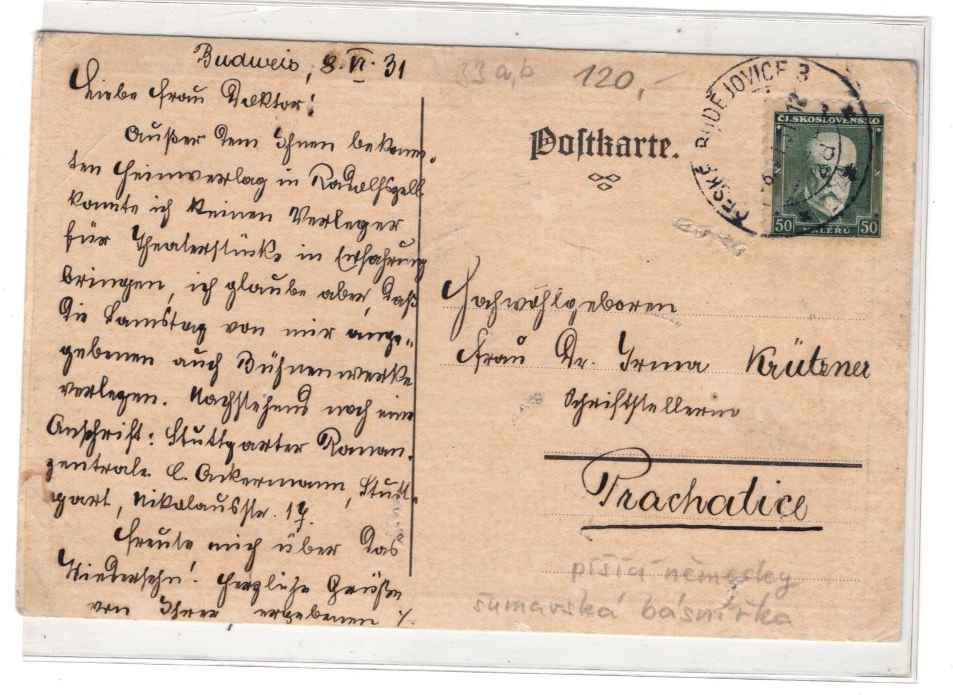 Budweis, 8. VI. 31
Liebe Frau Doktor!
Außer dem Ihnen bekann-
ten Heimverlag in Radolfszell
konnte ich keinen Verleger
für Theaterstücke in Erfahrung
bringen, ich glaube aber, daß
die Samstag von mir ange-
gebenen auch Bühnenwerke
verlegen. Nachstehend noch eine
Anschrift: Stuttgarter Roman-
zentrale C. Ackermann, Stutt-
gart, Nikolausstr. 17.
Freute mich über das
Wiedersehn! Herzliche Grüße
von Ihrer ergebenen ./.
33 a,b
120,-
Postkarte.
ČESKÉ BUDĚJOVICE 3
ČESKOSLOVENSKO
50 HALÉRŮ 50
Hochwohlgeboren
Frau Dr. Irma Krützner
Schriftstellerin
Prachatice
píšící německy
šumavská básnířka